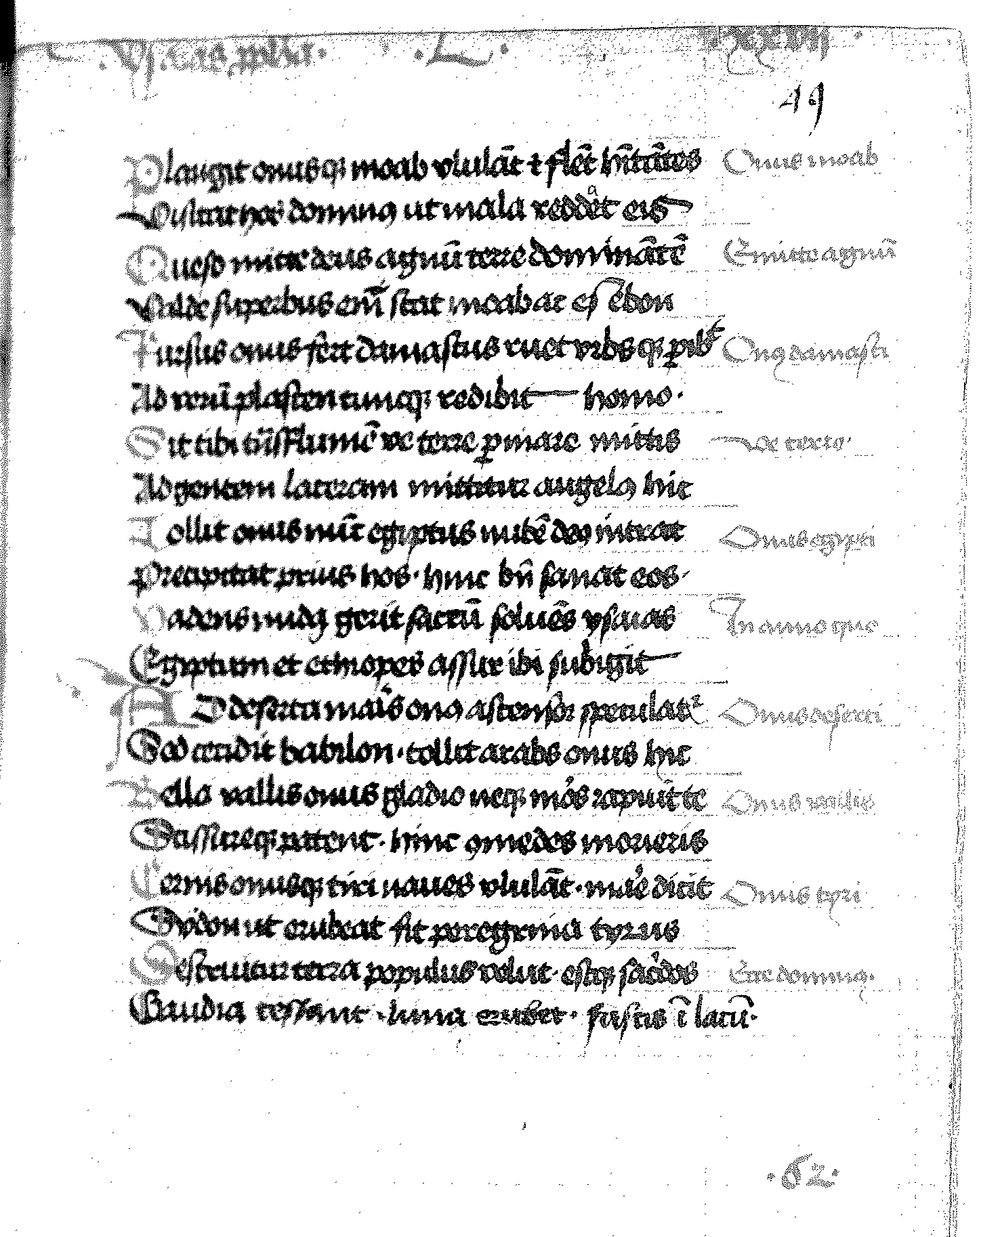 Plangit onusqꝫ moab vlulāt ⁊ flēt hītātes Onus moab
Visitat hos dominꝰ ut mala reddet eis
Queso mitte deus agnū terre dominātē Emitte agnū
Valde superbus eni stat moab ac esebon
Rursus onus fert damascus ruet vrbs qꝫ Onꝰ damasci
Ad rerū plasten tuncqꝫ redibit homo.
Sit tibi flumē ve terre mare mittis Ve terre
Ad gentem laceram mittitur angelꝰ hic
Tollit onus egiptus nubē deꝰ intrat Onus egypti
Precipitat prius hos. hinc bn̄ sanat eos.
Vadens nudꝰ gerit saccū soluēs ysaias In anno quo
Egiptum et ethiopes assur ibi subigit
AD deserta maris onꝰ ascensor speculatr Onus deserti
Sed cecidit babilon. tollit arabs onus hic
Bella vallis onus gladio neqꝫ mors rapuit te Onus vallis
patent. hinc ꝯmedes morieris
Cernis onusqꝫ tiri naues vlulāt. mare dicit Onus tyri
Sydon ut erubeat fit peregrina tyrus
Destruitur terra populus velut. estqꝫ sacerdos Ecce dominꝰ.
Gaudia cessant. luna erubet. fustis ī lacū.
.62.